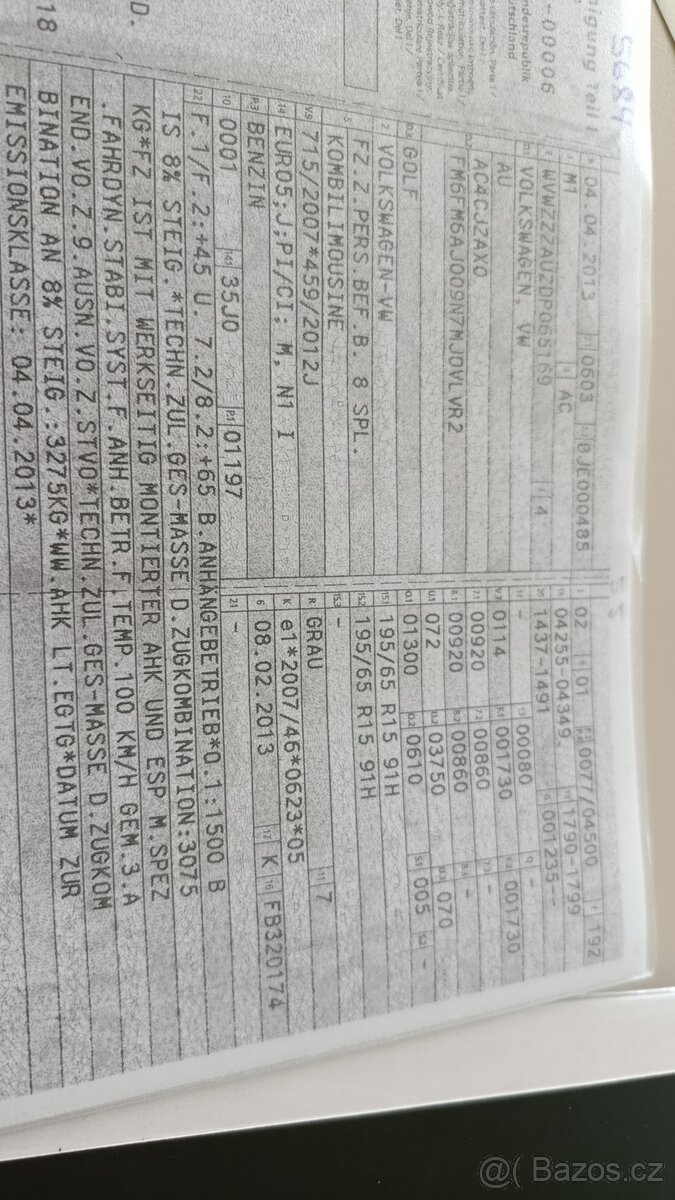 5684
igung Teil I
ndesrepublik
utschland
-00006
D.
18
B 04.04.2013 2.1 0603 2.2 BJE000485
J M1 4 AC
E WVWZZZAUZDP065169 3 4
D.1 VOLKSWAGEN, VW
AU
AC4CJZAX0
FM6FM6AJ009N7MJOVLVR2
D.3 GOLF
2 VOLKSWAGEN-VW
5 FZ.Z.PERS.BEF.B. 8 SPL.
KOMBILIMOUSINE
V.9 715/2007*459/2012J
14 EURO5;J;PI/CI; M, N1 I
P.3 BENZIN
10 0001 14.1 35J0 P.1 01197
L 02 9 01 P.2 P.4 0077/04500 T 192
18 04255-04349 19 1790-1799
20 1437-1491 G 001235--
12 - 13 00080 Q -
V.7 0114 F.1 001730 F.2 001730
7.1 00920 7.2 00860 7.3 -
8.1 00920 8.2 00860 8.3 -
U.1 072 U.2 03750 U.3 070
O.1 01300 O.2 0610 S.1 005 S.2 -
15.1 195/65 R15 91H
15.2 195/65 R15 91H
15.3 -
R GRAU 11 7
K e1*2007/46*0623*05
6 08.02.2013 17 K 16 FB320174
21 -
22 F.1/F.2:+45 U. 7.2/8.2:+65 B.ANHÄNGEBETRIEB*O.1:1500 B
IS 8% STEIG.*TECHN.ZUL.GES-MASSE D.ZUGKOMBINATION:3075
KG*FZ IST MIT WERKSEITIG MONTIERTER AHK UND ESP M.SPEZ
.FAHRDYN.STABI.SYST.F.ANH.BETR.F.TEMP.100 KM/H GEM.3.A
END.VO.Z.9.AUSN.VO.Z.STVO*TECHN.ZUL.GES-MASSE D.ZUGKOM
BINATION AN 8% STEIG.:3275KG*WW.AHK LT.EGTG*DATUM ZUR
EMISSIONSKLASSE: 04.04.2013*
@( Bazoš.cz